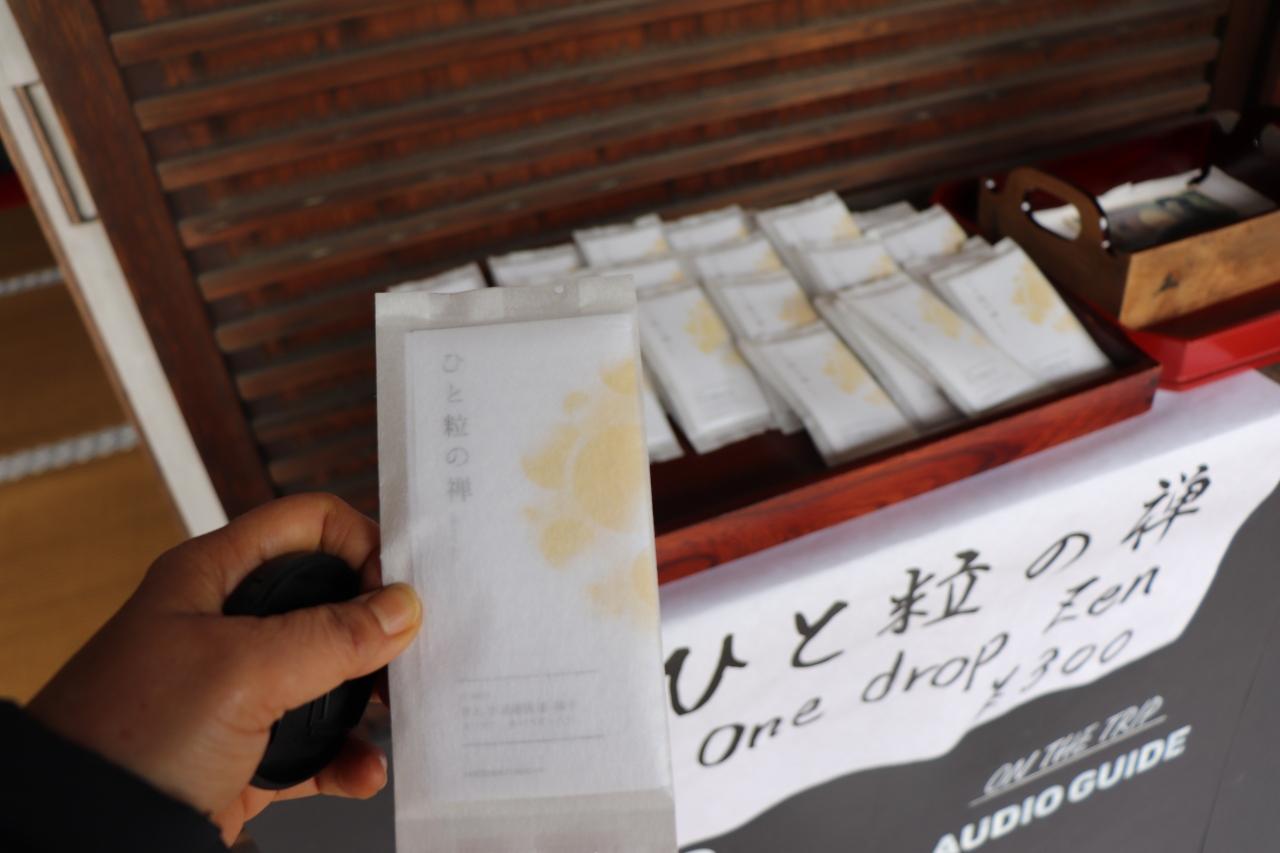 ひと粒の禅
ひと粒の禅
One drop Zen
¥300
ON THE TRIP
AUDIO GUIDE